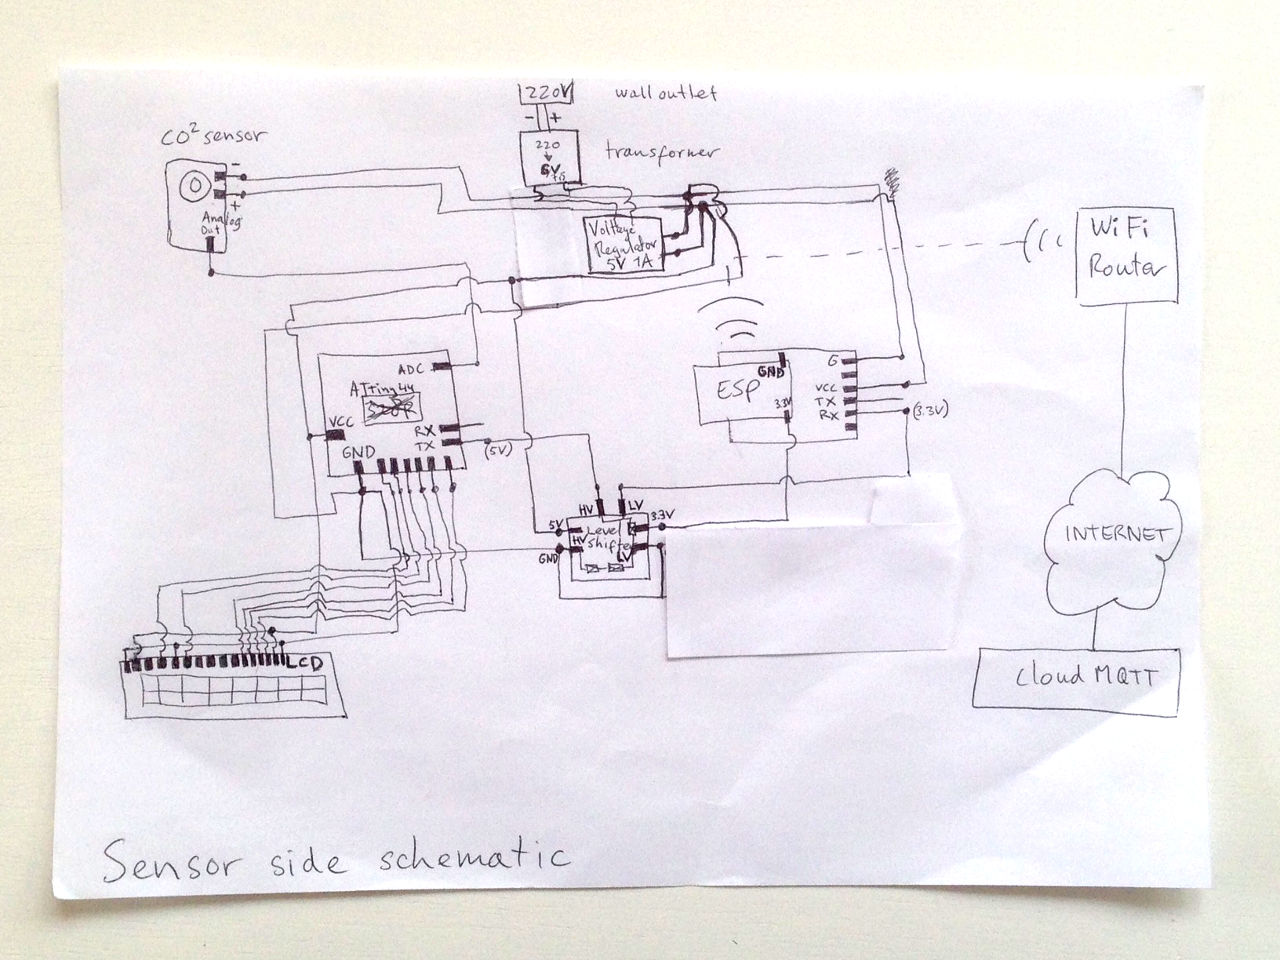 220V
wall outlet
- +
CO² sensor
220
6V
transformer
-
+
Analog
Out
Voltage
Regulator
5V 1A
WiFi
Router
ADC
ATtiny44
VCC
RX
TX
GND
(5V)
G
GND
ESP
3.3V
VCC
TX
RX
(3.3V)
HV
LV
5V
3.3V
Level
Shifter
HV
LV
GND
INTERNET
LCD
Cloud MQTT
Sensor side schematic